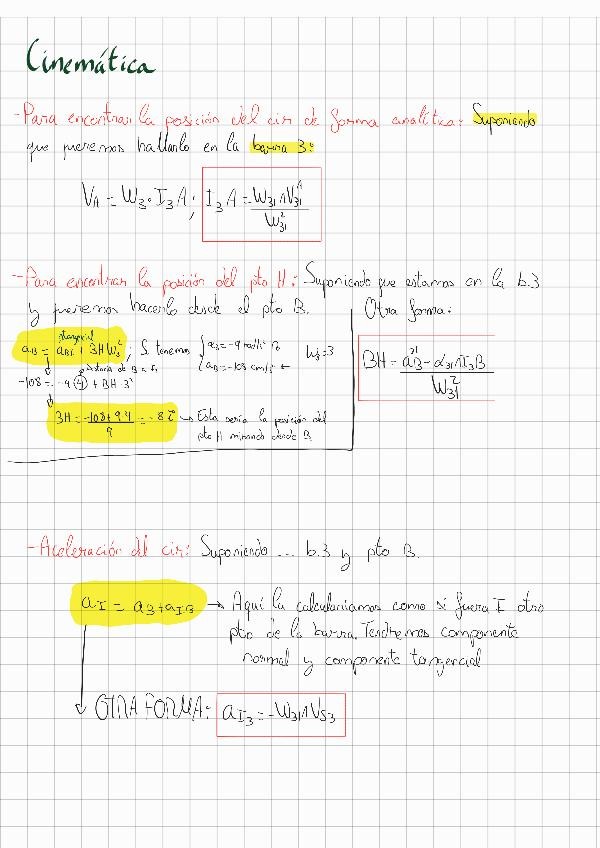 Cinemática
-Para encontrar la posición del cir de forma analítica: Suponiendo
que queremos hallarlo en la barra 3:
VA = W3 · I3A ; I3A = W31 ∧ V31^A / W31^2
-Para encontrar la posición del pto H: Suponiendo que estamos en la b.3
y queremos hacerlo desde el pto B.
Otra forma:
tangencial
aB = aBI + BH W3^2 ; Si tenemos { α3 = -9 rad/s²
W3=3
{ aB = -108 cm/s² ←
distancia de B a I3
-108 = -9(4) + BH·3²
BH = aB^31 - α31 ∧ I3B / W31^2
→ Esta sería la posición del
pto H mirando desde B.
-Aceleración del cir: Suponiendo ... b.3 y pto B.
aI = aB + aIB → Aquí la calcularíamos como si fuera I otro
pto de la barra. Tendremos componente
normal y componente tangencial
OTRA FORMA: aI3 = -W31 ∧ VS3